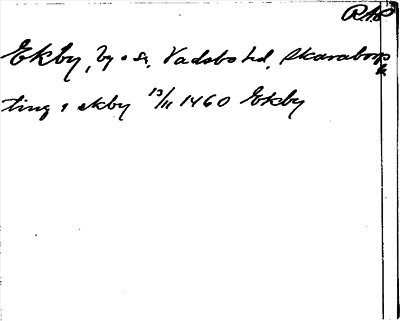 RAP
Ekby, by o s, Vadsbo hd, Skaraborgs
l.
ting i ekby 13/11 1460 Ekby